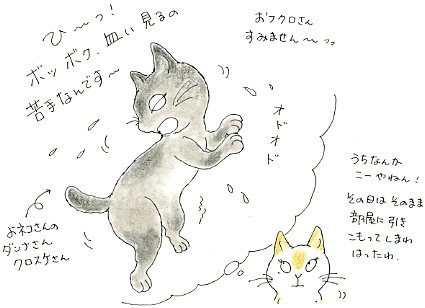 ひ〜っ!
ボッ ボク、血い見るの
苦手なんです〜
おフクロさん
すみません〜ッッ
オドオド
うちなんか
こーやねん!
その日は そのまま
部屋に引き
こもってしまわ
はったわ.
よネコさんの
ダンナさん
クロスケさん